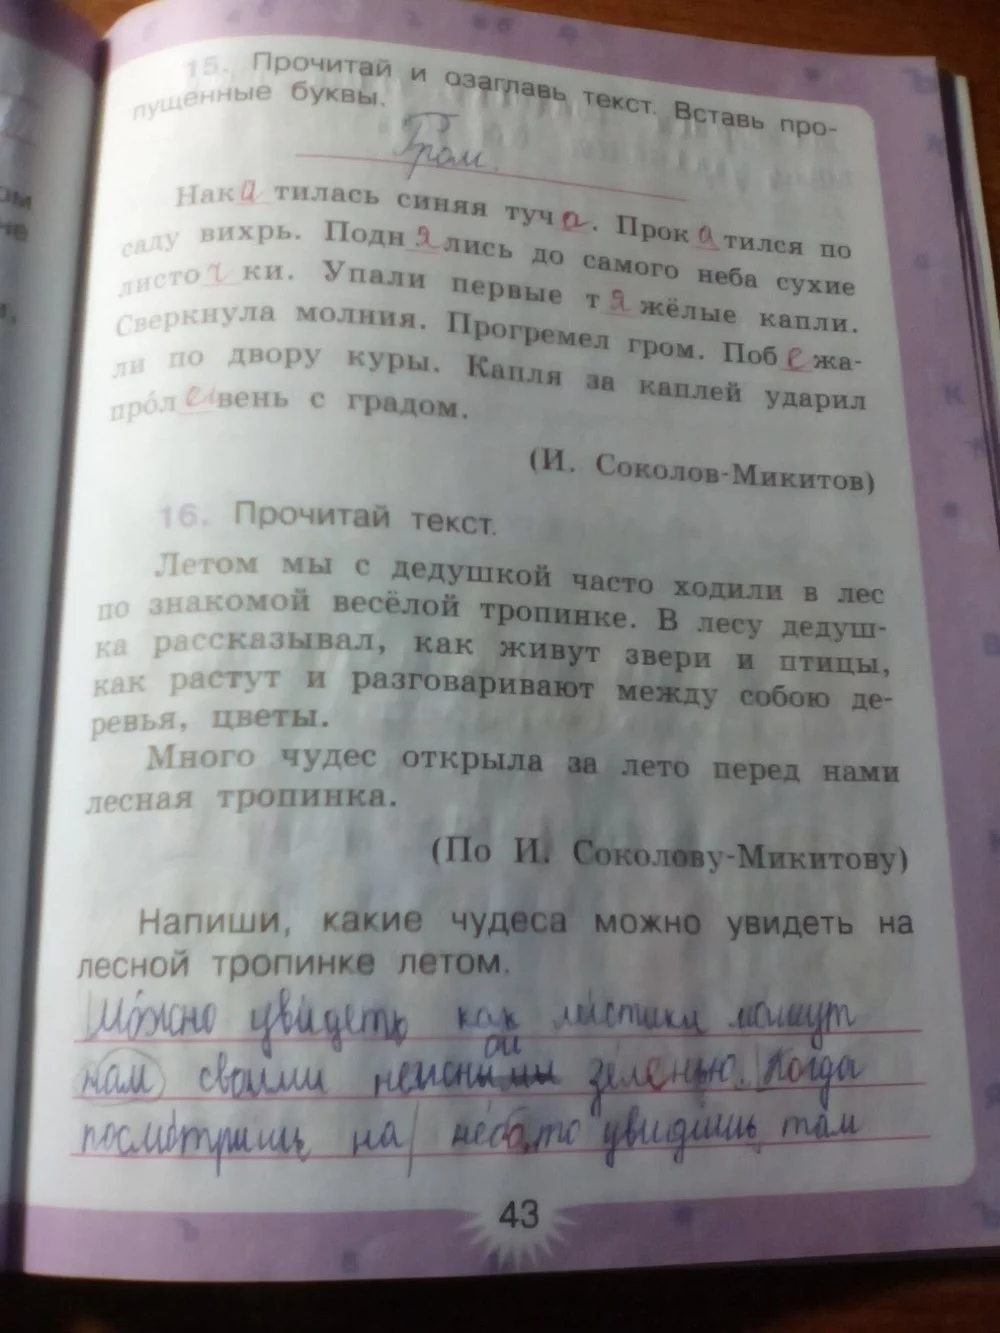 15. Прочитай и озаглавь текст. Вставь про-
пущенные буквы.
Гром.
Накатилась синяя туча. Прокатился по
саду вихрь. Поднялись до самого неба сухие
листочки. Упали первые тяжёлые капли.
Сверкнула молния. Прогремел гром. Побежа-
ли по двору куры. Капля за каплей ударил
про́ливень с градом.
(И. Соколов-Микитов)
16. Прочитай текст.
Летом мы с дедушкой часто ходили в лес
по знакомой весёлой тропинке. В лесу дедуш-
ка рассказывал, как живут звери и птицы,
как растут и разговаривают между собою де-
ревья, цветы.
Много чудес открыла за лето перед нами
лесная тропинка.
(По И. Соколову-Микитову)
Напиши, какие чудеса можно увидеть на
лесной тропинке летом.
Можно увидеть как листики машут
ой
нам своими зеленью. Когда
посмотришь на небо, то увидишь там
43